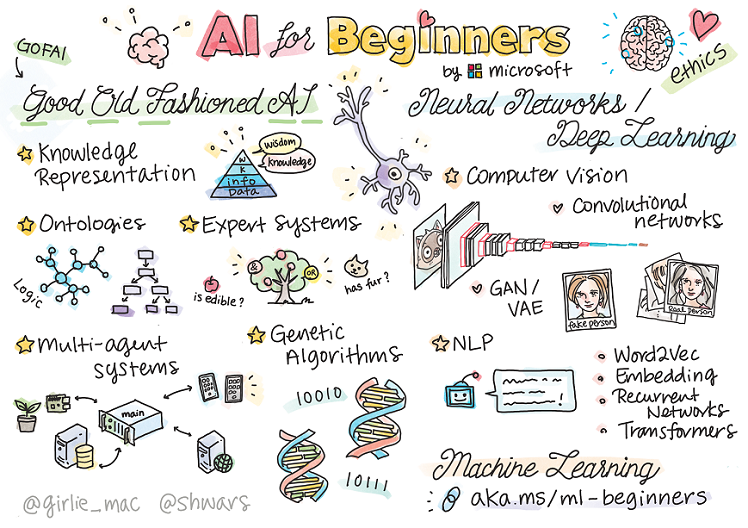 GOFAI
AI for Beginners
by microsoft
ethics
Good Old Fashioned AI
Knowledge
Representation
wisdom
knowledge
W
K
info
Data
Ontologies
Logic
Expert Systems
&
OR
is edible?
has fur?
Multi-agent
Systems
main
Genetic
Algorithms
10010
10111
Neural Networks /
Deep Learning
Computer Vision
Convolutional
networks
GAN/
VAE
fake person
Real person
NLP
Word2Vec
Embedding
Recurrent
Networks
Transformers
Machine Learning
aka.ms/ml-beginners
@girlie_mac @shwars